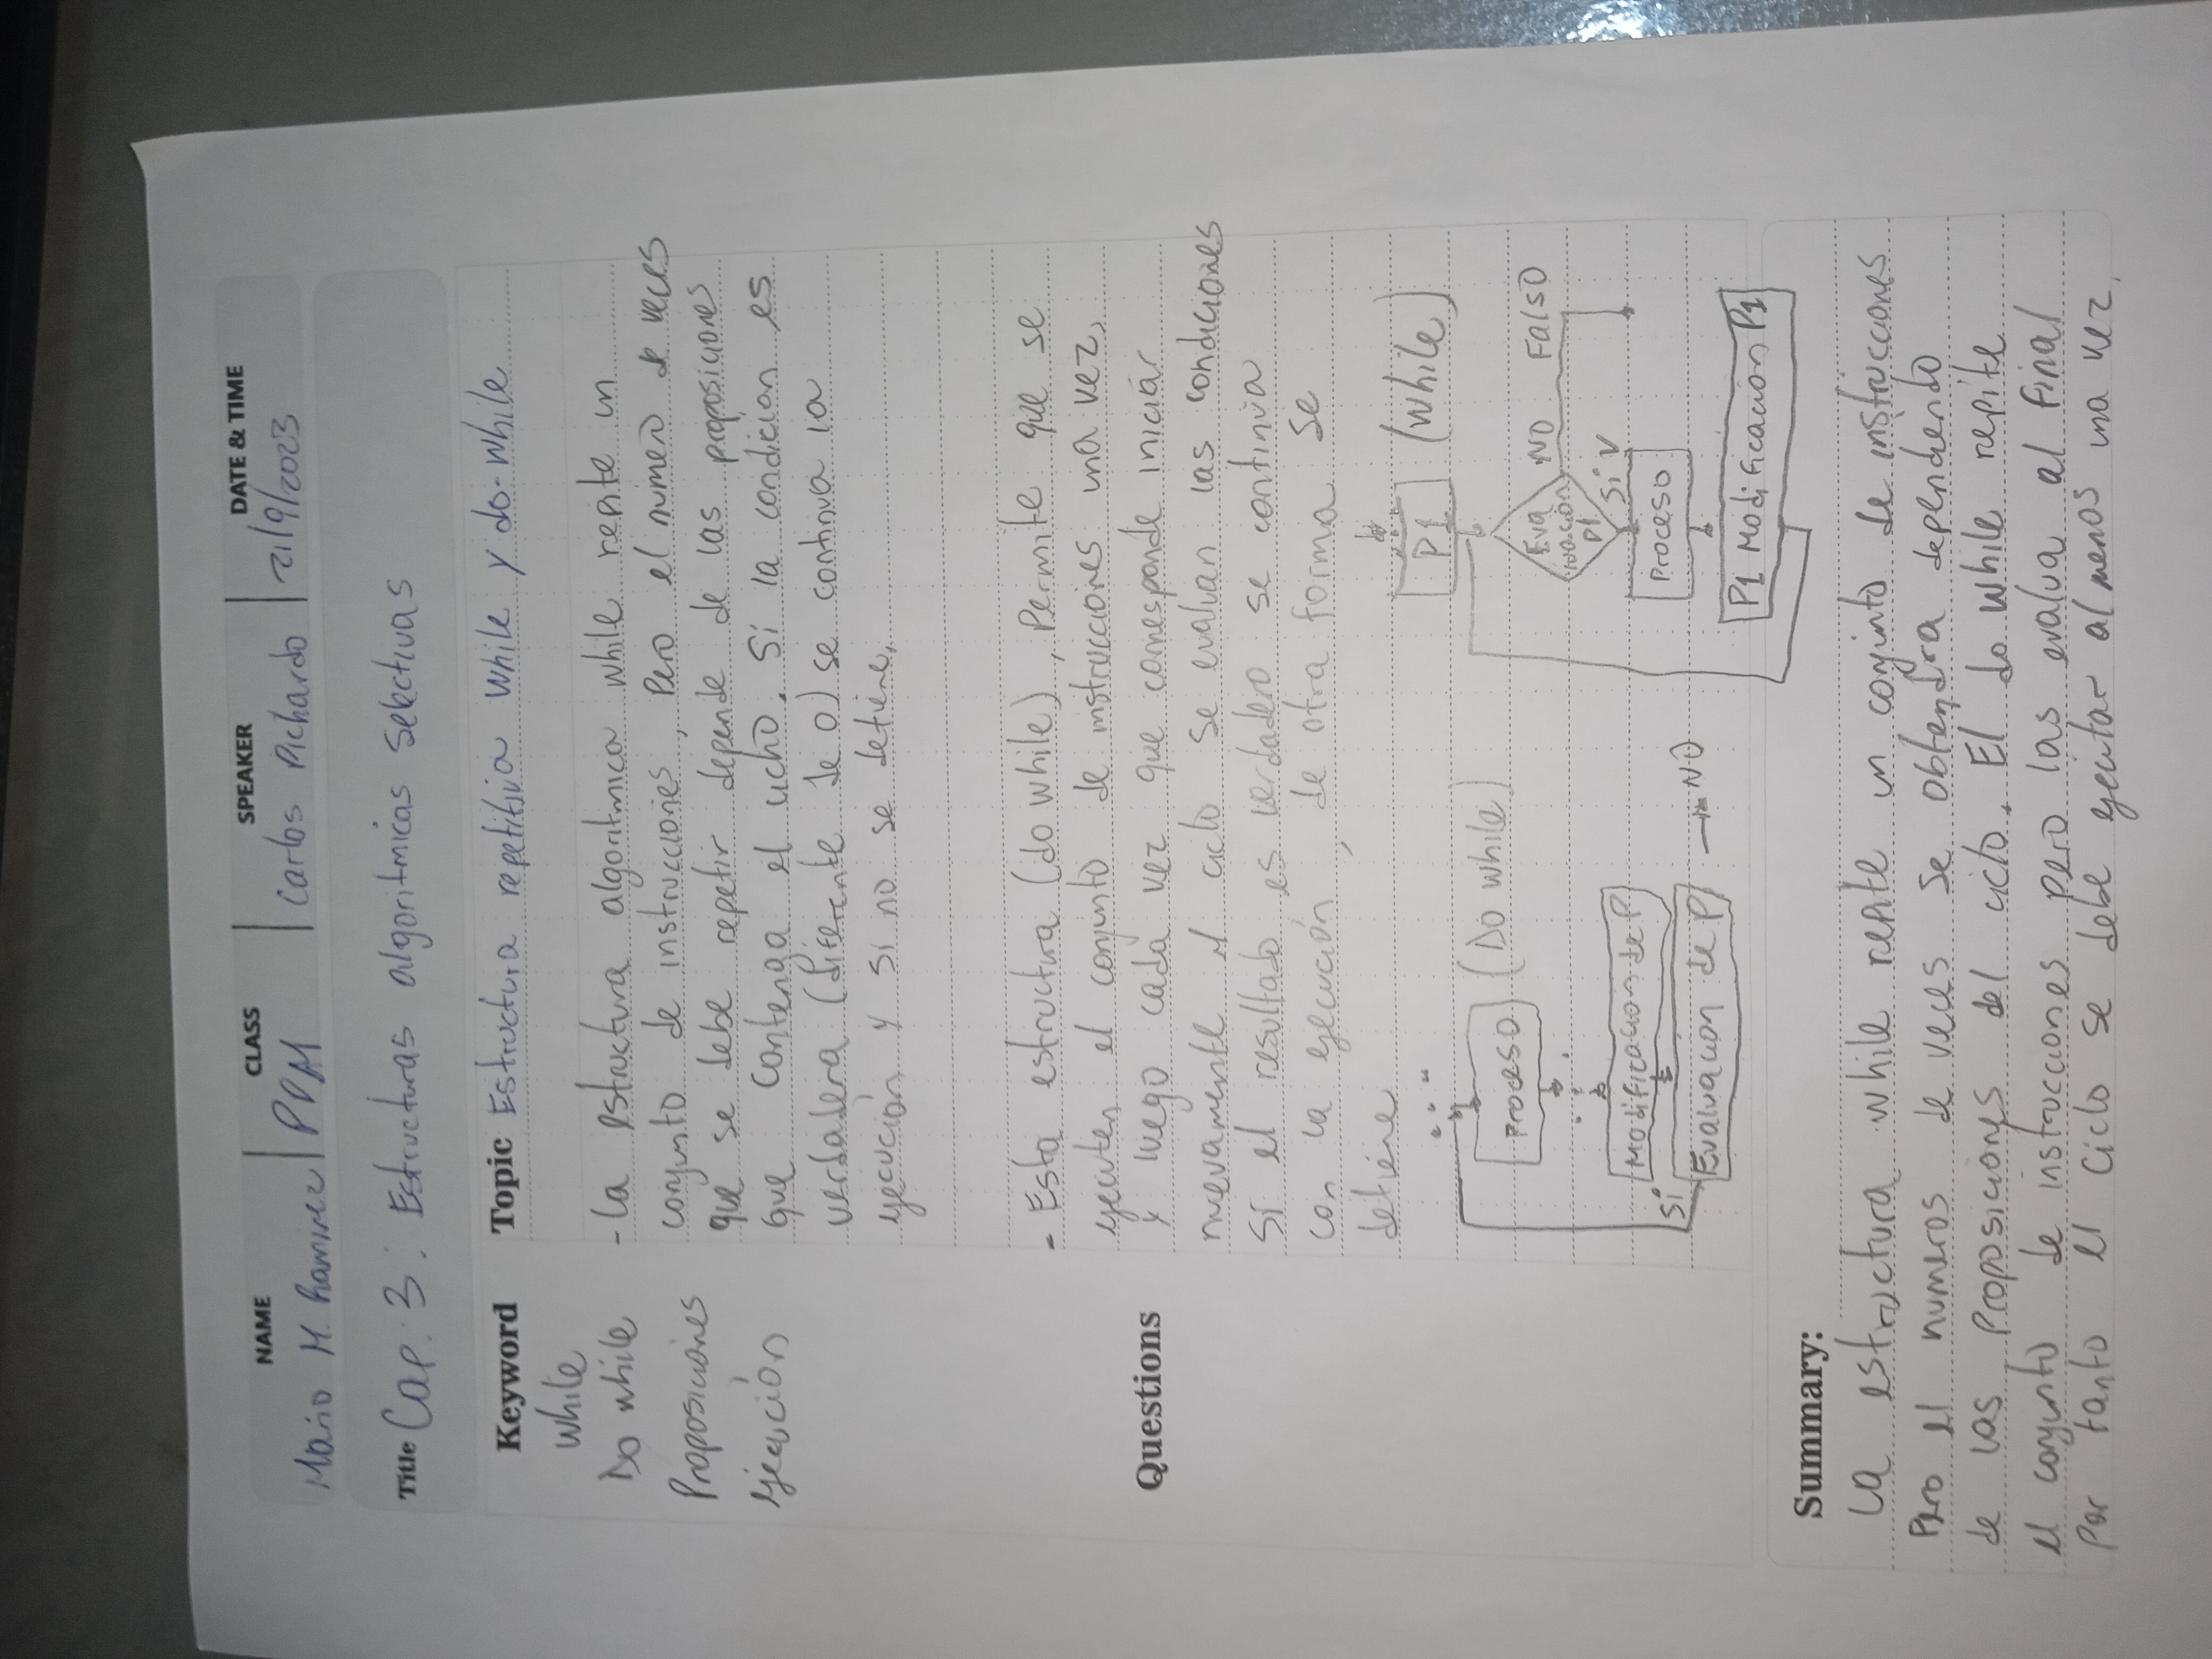 NAME CLASS SPEAKER DATE & TIME
Mario M. Ramirez PPM Carlos Pichardo 21/9/2023
Title Cap. 3: Estructuras algoritmicas Selectivas
Keyword
while
Do while
Proposiciones
ejecución
Topic Estructura repetitiva while y do-while
- La estructura algoritmica while repite un
conjunto de instrucciones, Pero el numero de veces
que se debe repetir depende de las proposiciones
que contenga el ciclo. Si la condición es
verdadera (diferente de 0) se continua la
ejecución y si no se detiene.
- Esta estructura (do while), Permite que se
ejecuten el conjunto de instrucciones una vez,
y luego cada vez que corresponde iniciar
nuevamente el ciclo se evaluan las condiciones
si el resultado es verdadero se continua
con la ejecución, de otra forma se
detiene
Questions
(Do while)
Proceso
Modificacion de P
Si
Evaluacion de P
NO
P1 (while)
Evaluacion P1
NO Falso
Si V
Proceso
P1 Modificacion P1
Summary:
La estructura while repite un conjunto de instrucciones
Pero el numeros de veces se obtendra dependiendo
de las Proposiciones del ciclo. El do while repite
el conjunto de instrucciones pero las evalua al final
Por tanto el ciclo se debe ejecutar al menos una vez.